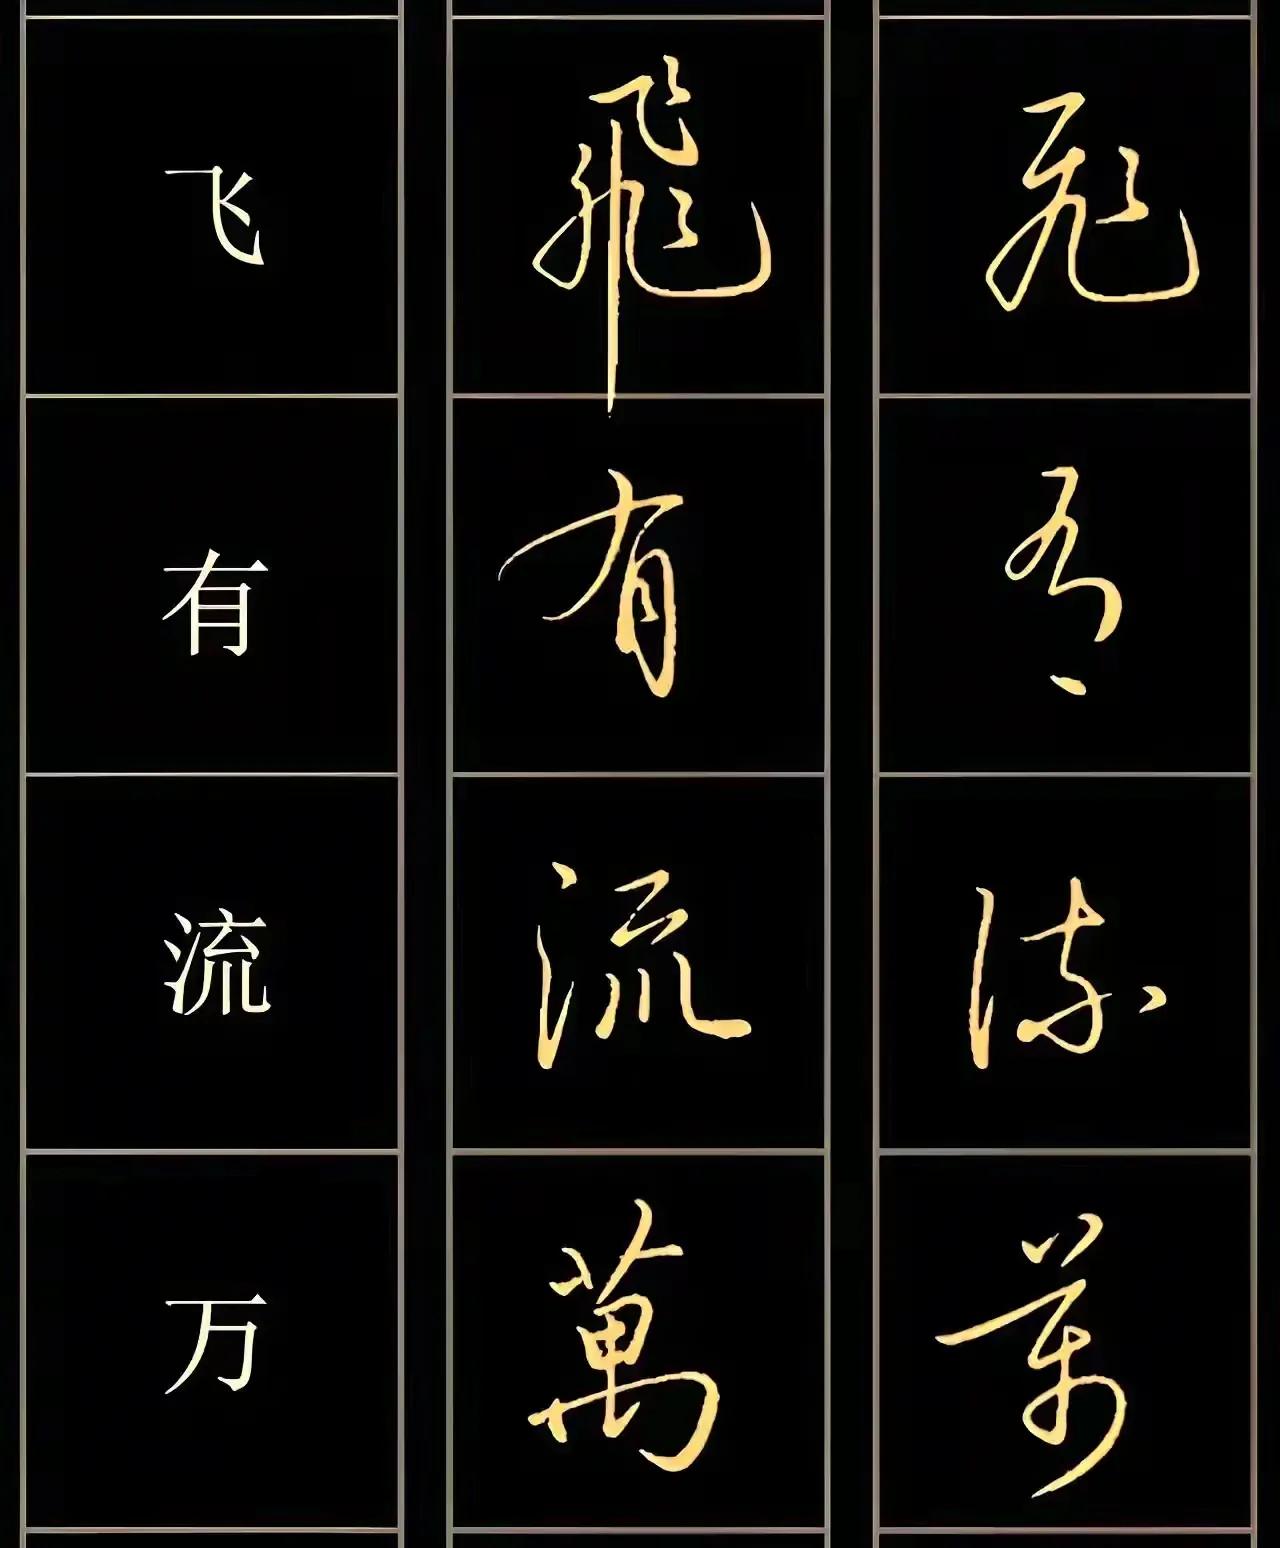 飞 飛 飛
有 有 有
流 流 流
万 萬 萬